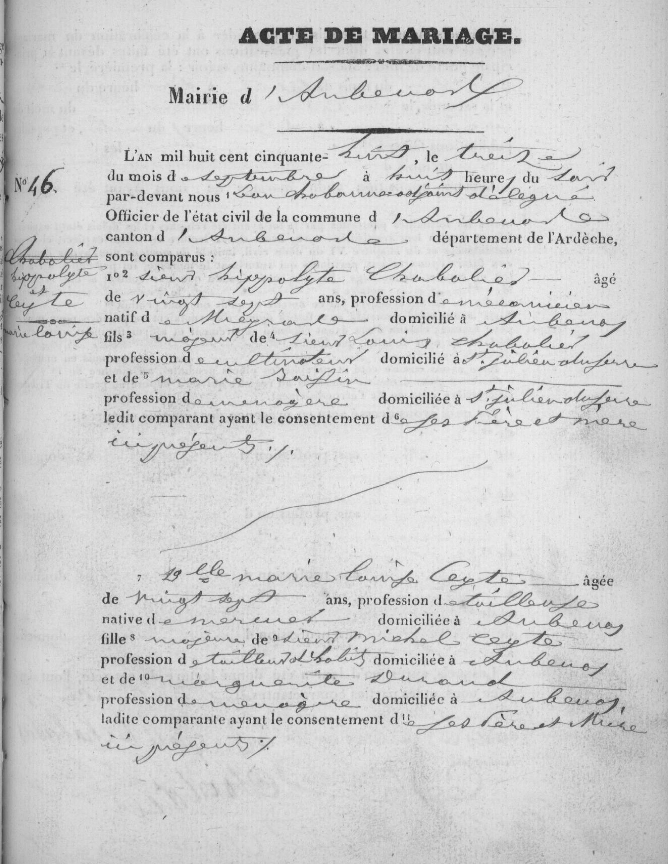 ACTE DE MARIAGE.
Mairie d 'Aubenas
L'AN mil huit cent cinquante-huit, le treize
N° 46.
du mois de septembre à huit heures du soir
par-devant nous Léon Chabanne adjoint délégué
Officier de l'état civil de la commune d 'Aubenas
canton d 'Aubenas département de l'Ardèche,
sont comparus :
Chabalier
hippolyte
et
Ceyte
marie louise
1° 2 sieur hippolyte Chabalier âgé
de vingt sept ans, profession de mécanicien
natif de Meyras domicilié à Aubenas
fils 3 majeur de 4 sieur Louis Chabalier
profession de cultivateur domicilié à St julien du serre
et de 5 marie
profession de menagère domiciliée à St julien du serre
ledit comparant ayant le consentement d 6 e ses Père et mère
ici présents ./.
7 2° lle marie louise Ceyte âgée
de vingt sept ans, profession de tailleuse
native de mercuer domiciliée à Aubenas
fille 8 majeure de 9 sieur Michel Ceyte
profession de tailleur d'habits domiciliée à Aubenas
et de 10 marguerite Durand
profession de menagère domiciliée à Aubenas
ladite comparante ayant le consentement d 11 e ses Père et Mère
ici présents ./.